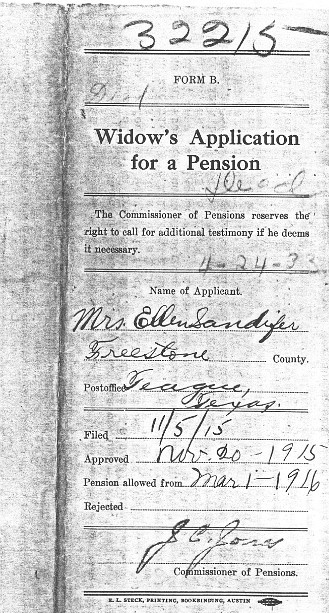 32215
FORM B.
Widow's Application
for a Pension
Dead
The Commissioner of Pensions reserves the
right to call for additional testimony if he deems
it necessary.
4-24-33
Name of Applicant.
Mrs. Ellen Sandifer
Freestone County.
Postoffice Teague,
Texas.
Filed 11/5/15
Approved Nov. 20-1915
Pension allowed from Mar 1-1916
Rejected
J. C. Jones
Commissioner of Pensions.
E. L. STECK, PRINTING, BOOKBINDING, AUSTIN